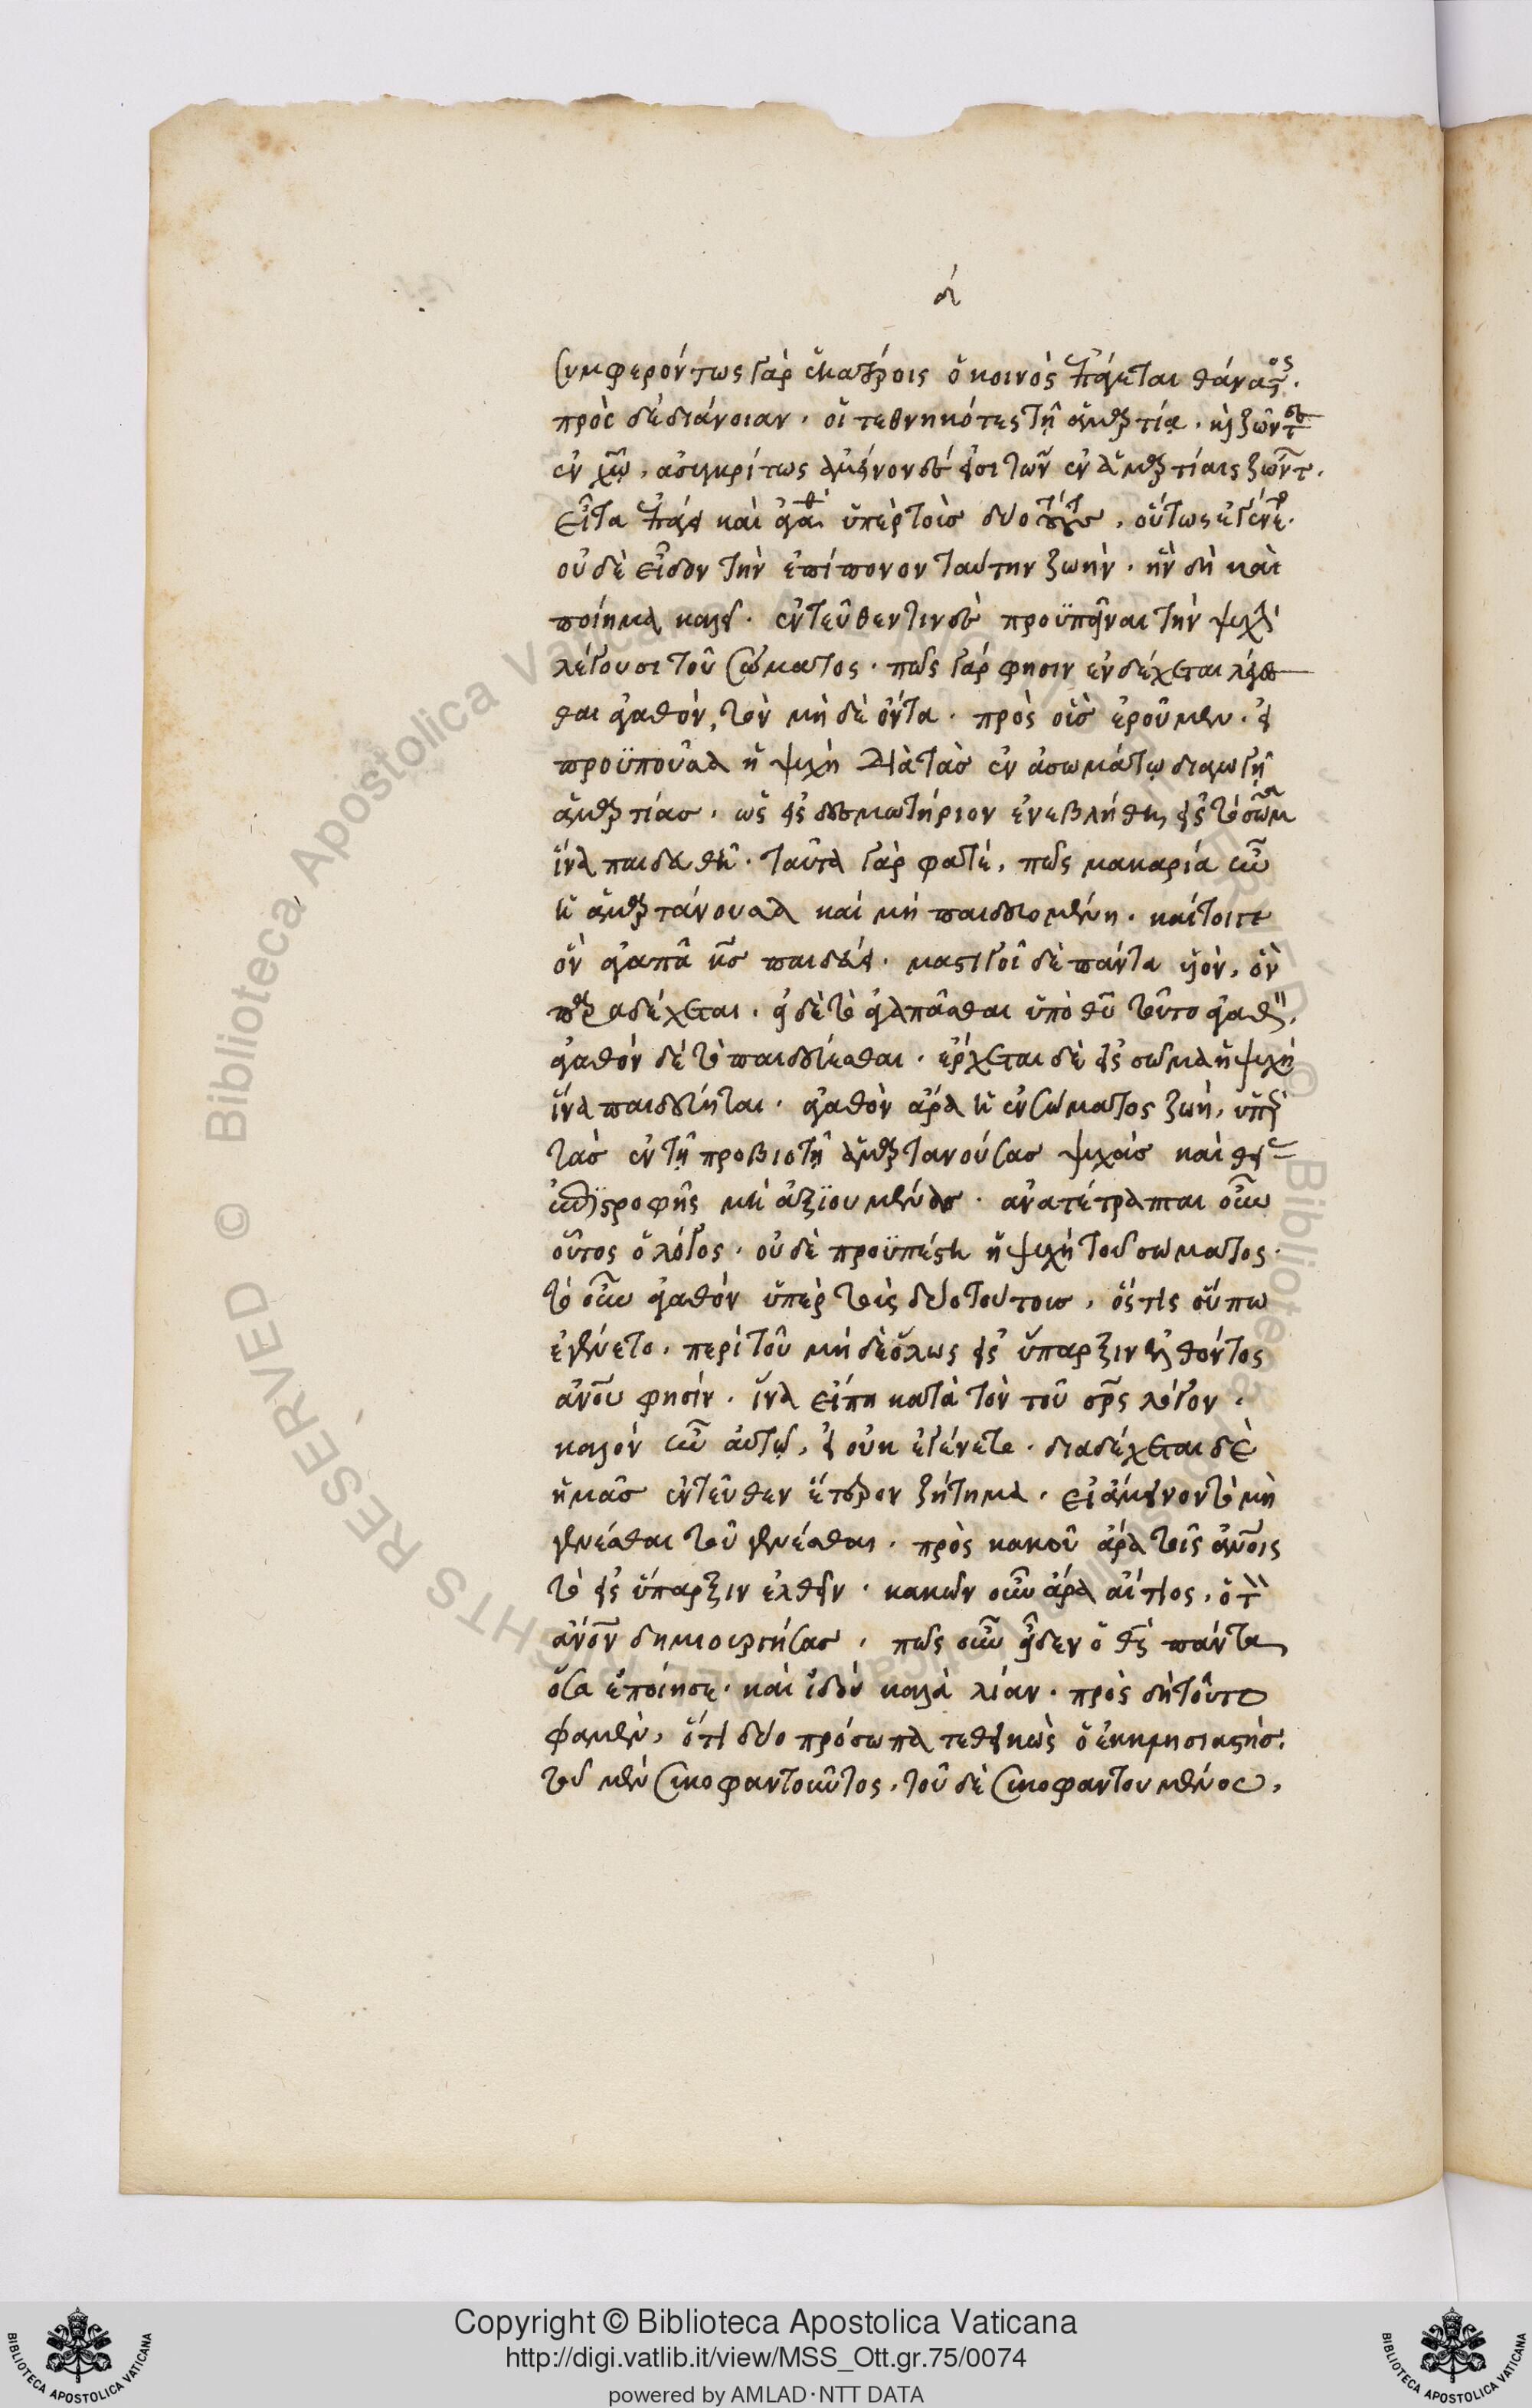 α
συμφερόντως γὰρ ἑκατέροις ὁ κοινὸς ἐπάγεται θάνατος.
πρὸς δὲ διάνοιαν. οἱ τεθνηκότες τῇ ἁμαρτίᾳ. καὶ ζῶντες
ἐν χῶ, ἀσυγκρίτως ἀμείνονές εἰσι τῶν ἐν ἁμαρτίαις ζώντ.
εἶτα ἐπάγει καὶ ἀγαθὸς ὑπὲρ τοὺς δύο τούτους, οὕτως ἐγένε.
οὐδὲ εἶδον τὴν ἐπίπονον ταύτην ζωὴν. ἣν δὴ καὶ
ποίημα καλεῖ. ἐντεῦθεν τινὲς προϋπάρχειν τὴν ψυχὴν
λέγουσι τοῦ σώματος. πῶς γάρ φησιν ἐνδέχεται λέγεσ
θαι ἀγαθὸν, τὸν μὴ δὲ ὄντα. πρὸς οὓς ἐροῦμεν. εἰ
προϋποῦσα ἡ ψυχὴ διὰ τὰς ἐν ἀσωμάτῳ διαγωγῇ
ἁμαρτίας. ὡς εἰς δεσμωτήριον ἐνεβλήθη εἰς τὸ σῶμα
ἵνα παιδευθῇ. ταῦτα γάρ φατὲ, πῶς μακαρία ἦν
ἡ ἁμαρτάνουσα καὶ μὴ παιδευομένη. καίτοιγε
ὃν ἀγαπᾶ κς παιδεύει. μαστιγοῖ δὲ πάντα υἱὸν, ὃν
παραδέχεται. εἰ δὲ τὸ ἀγαπᾶσθαι ὑπὸ θῦ τοῦτο ἀγαθὸν,
ἀγαθὸν δὲ τὸ παιδεύεσθαι. ἔρχεται δὲ εἰς σῶμα ἡ ψυχὴ
ἵνα παιδεύηται. ἀγαθὸν ἄρα ἡ ἐν σώματος ζωὴ, ὑπὲρ
τὰς ἐν τῇ προβιοτῇ ἁμαρτανούσας ψυχὰς καὶ θείας
ἐπιστροφῆς μὴ ἀξϊουμένας. ἀνατέτραπται οὖν
οὗτος ὁ λόγος. οὐδὲ προϋπέστη ἡ ψυχὴ τοῦ σώματος.
τὸ οὖν ἀγαθὸν ὑπὲρ τοὺς δύο τούτους, ὅστις οὔπω
ἐγένετο. περὶ τοῦ μὴ δὲ ὅλως εἰς ὕπαρξιν ἐλθόντος
ἀνου φησίν. ἵνα εἴπη κατὰ τὸν τοῦ σρς λόγον.
καλὸν ἦν αὐτῷ, εἰ οὐκ ἐγένετο. διαδέχεται δὲ
ἡμᾶς ἐντεῦθεν ἕτερον ζήτημα. εἰ ἄμεινον τὸ μὴ
γενέσθαι τοῦ γενέσθαι. πρὸς κακοῦ ἄρα τοῖς ἀνοις
τὸ εἰς ὕπαρξιν ἐλθεῖν. κακῶν οὖν ἄρα αἴτιος, ὁ τὸν
ἀνον δημιουργήσας. πῶς οὖν εἶδεν ὁ θς πάντα
ὅσα ἐποίησε. καὶ ἰδοὺ καλὰ λίαν. πρὸς δὴ τοῦτο
φαμὲν, ὅτι δύο πρόσωπα τεθεικὼς ὁ ἐκκλησιαστὴς.
τοῦ μὲν συκοφαντοῦντος. τοῦ δὲ συκοφαντουμένου,